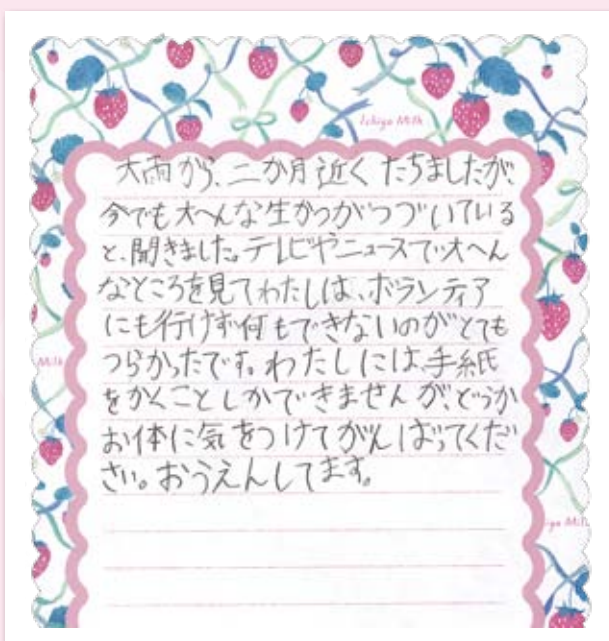 Ichigo Milk
大雨から、二か月近くたちましたが、
今でも大へんな生かつがつづいている
と、聞きました。テレビやニュースで大へん
なところを見てわたしは、ボランティア
にも行けず何もできないのがとても
つらかったです。わたしには、手紙
をかくことしかできませんが、どうか
お体に気をつけてがんばってくだ
さい。おうえんしてます。
Milk
igo Milk